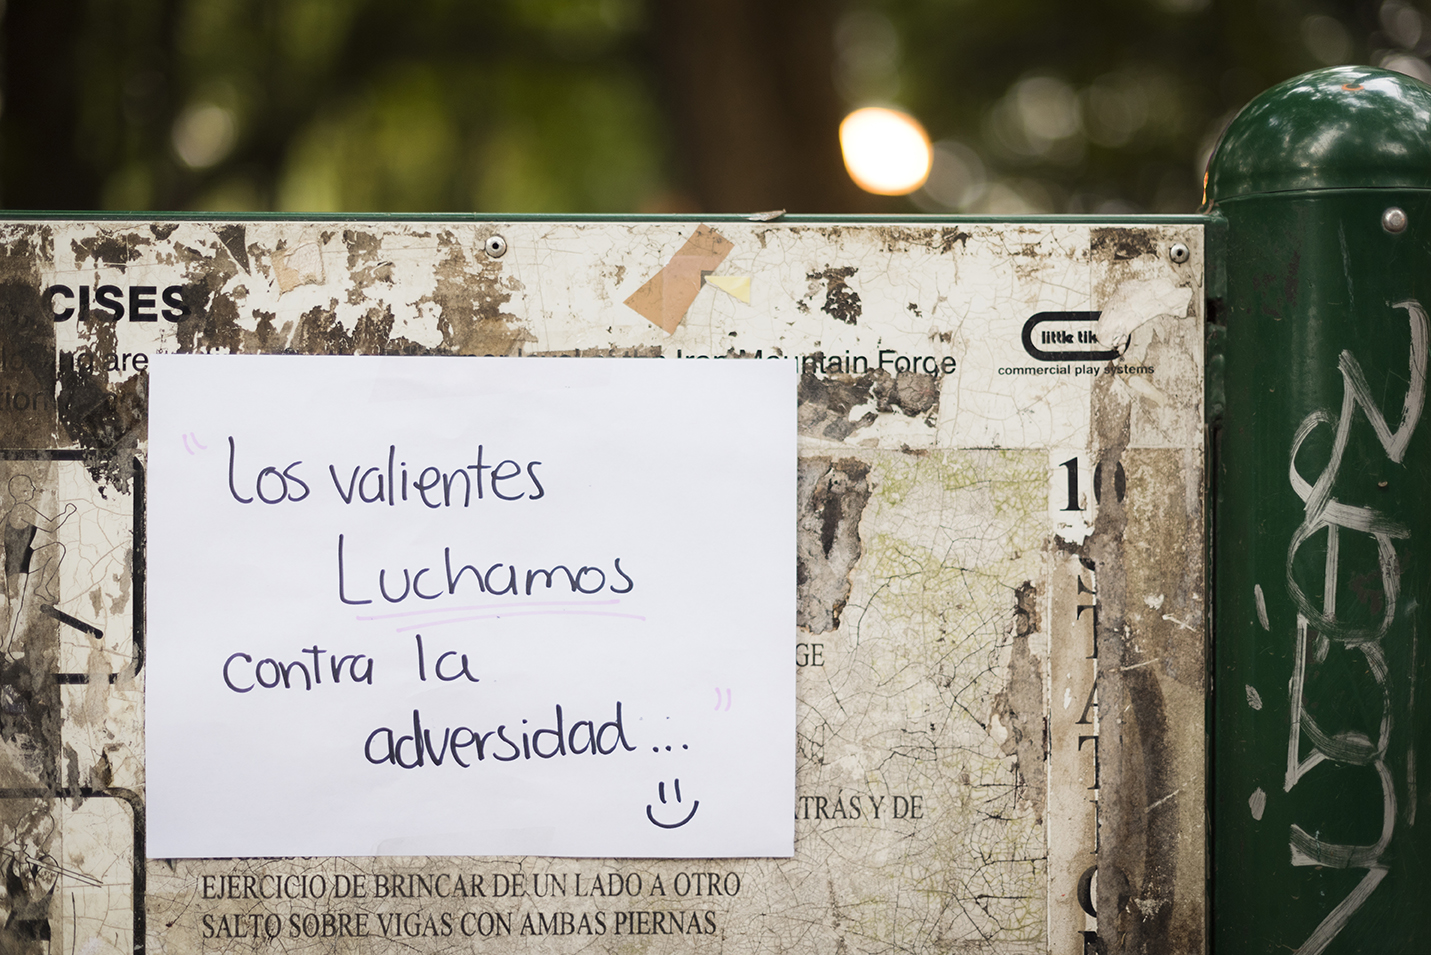 CISES
are Iron Mountain Forge
little tik
commercial play systems
"Los valientes
Luchamos
contra la
adversidad..."
10
STATION
GE
ATRÁS Y DE
EJERCICIO DE BRINCAR DE UN LADO A OTRO
SALTO SOBRE VIGAS CON AMBAS PIERNAS